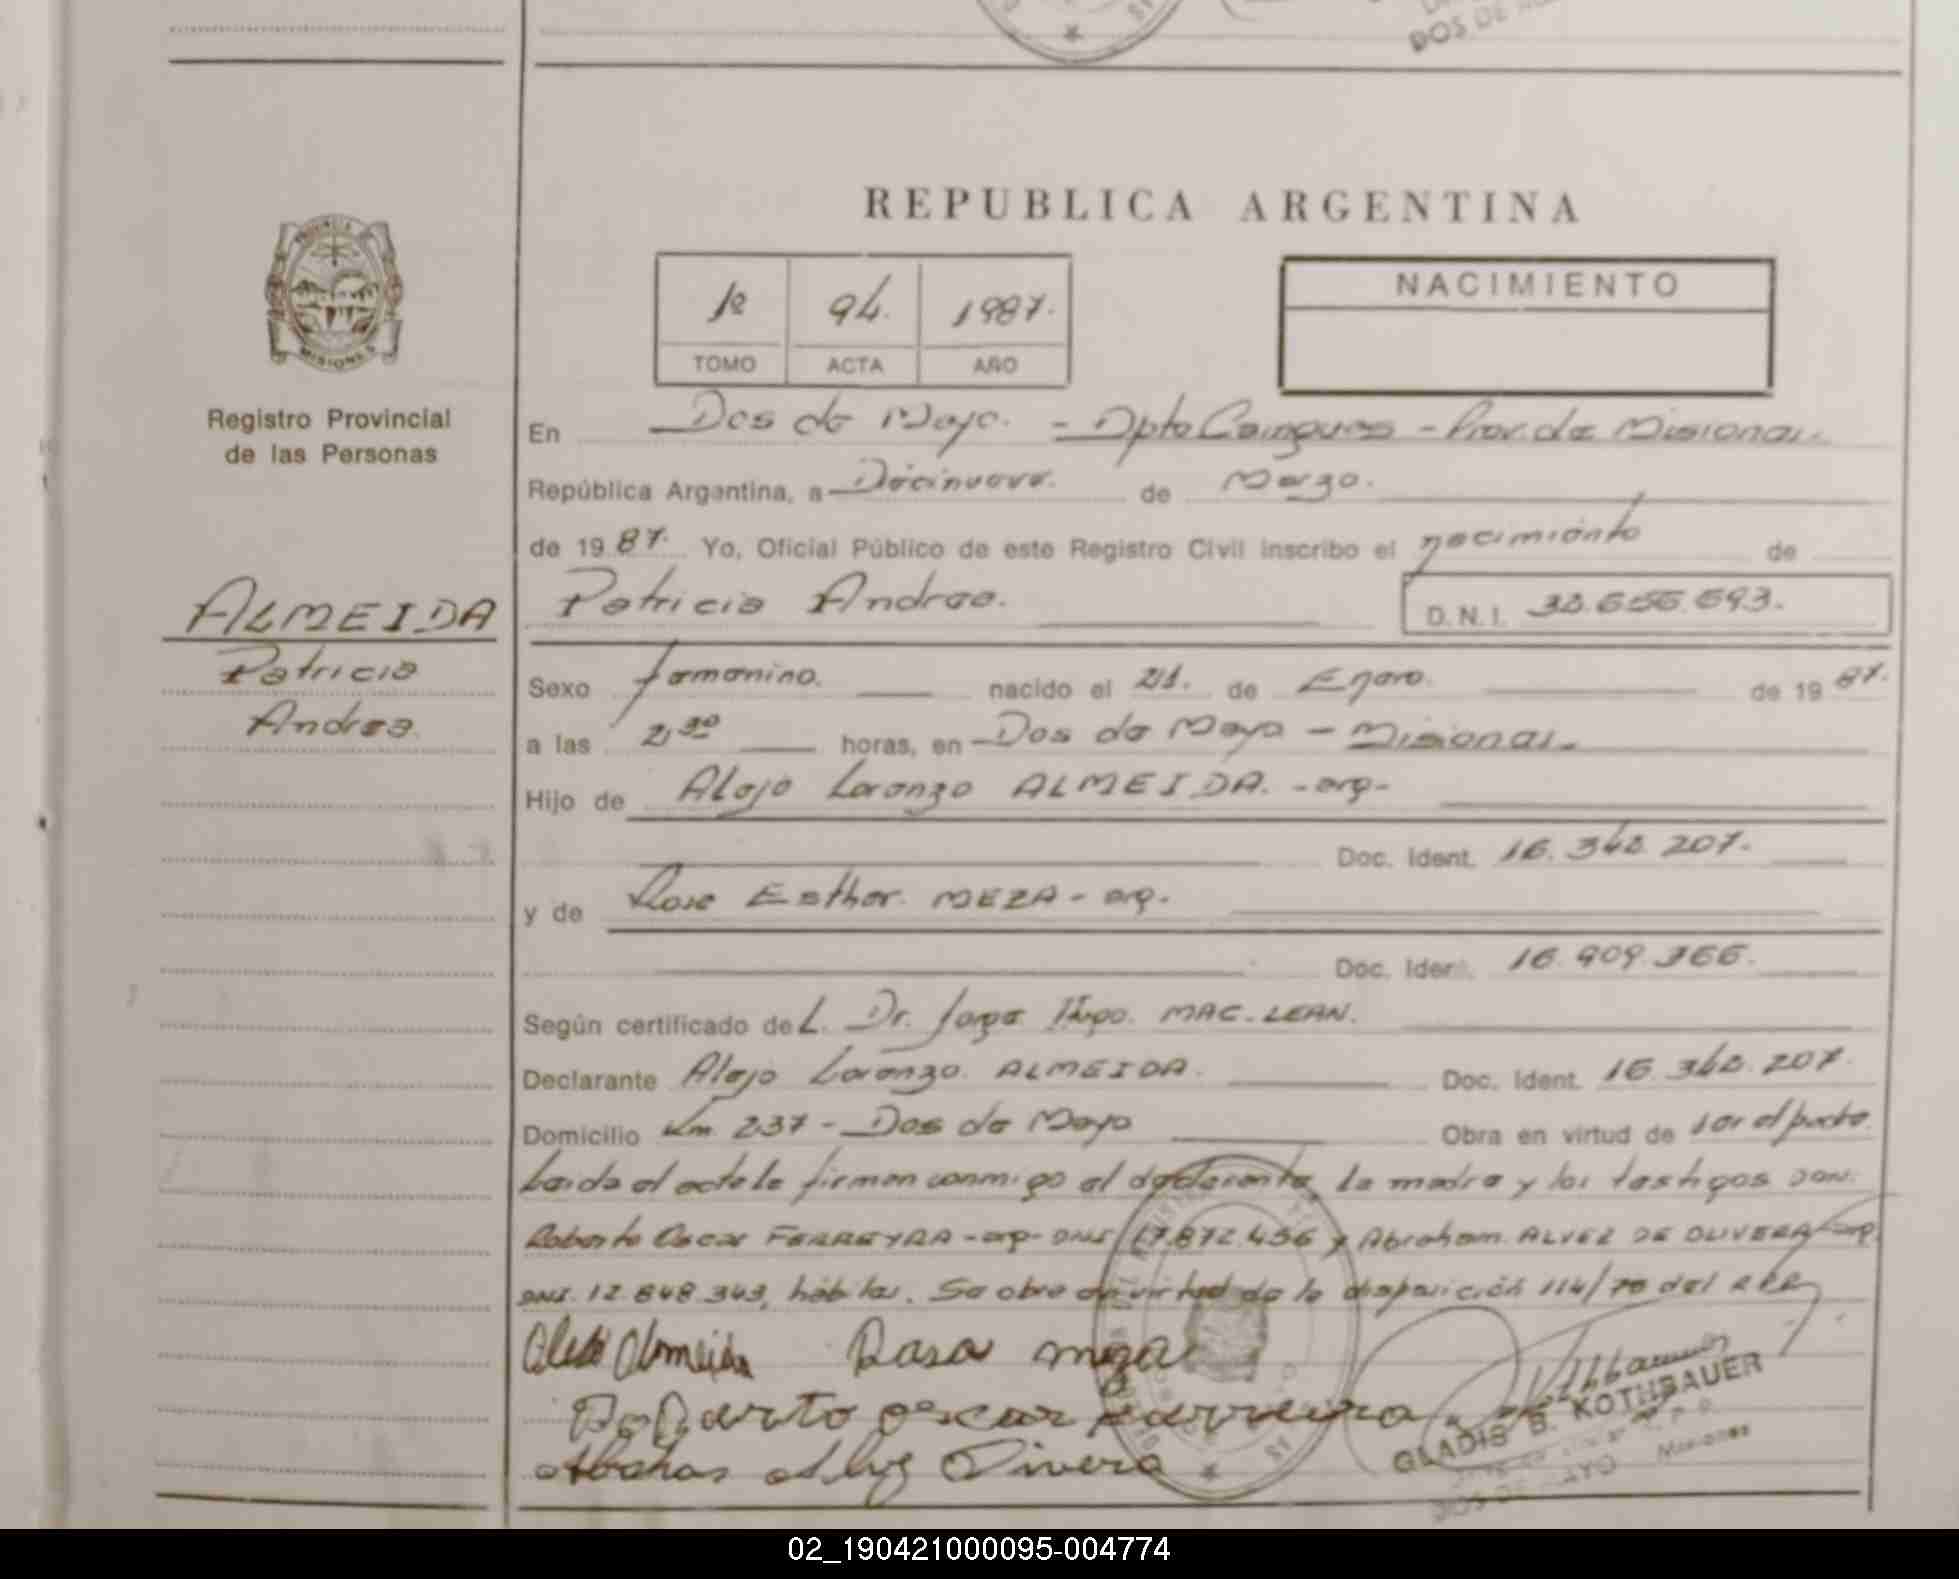 DOS DE
REPUBLICA ARGENTINA
1º 94. 1987.
TOMO ACTA AÑO
NACIMIENTO
PROVINCIA DE MISIONES
Registro Provincial
de las Personas
ALMEIDA
Patricia
Andrea.
En Dos de Mayo. - Dpto Cainguas - Prov. de Misiones.
República Argentina, a Diecinueve. de Marzo.
de 19 87. Yo, Oficial Público de este Registro Civil inscribo el nacimiento de
Patricia Andrea. D.N.I.
Sexo femenino. nacido el 21. de Enero. de 19 87.
a las 21 30 horas, en Dos de Mayo - Misiones.
Hijo de Alejo Lorenzo ALMEIDA. - arg -
Doc. Ident. 16. 342. 207.
y de Rosa Esther. MEZA - arg.
Doc. Ident. 16. 909. 366.
Según certificado de L. Dr. Jorge Hugo. MAC. LEAN.
Declarante Alejo Lorenzo. ALMEIDA. Doc. Ident. 16. 342. 207.
Domicilio Km 237 - Dos de Mayo Obra en virtud de ser el padre.
Leida el acta la firman conmigo el declarante la madre y los testigos DON.
Roberto Oscar FERREYRA - arg - DNI 17.872.456 y Abraham. ALVEZ DE OLIVERA - arg.
DNI. 12.848.343, hábiles. Se obra en virtud de la disposición 114/70 del R.P.P.
Alejo Almeida Rasa meza
Roberto oscar Farreira.
Alvez Olivera
GLADIS B. KOTHBAUER
DOS DE MAYO Misiones
02_190421000095-004774